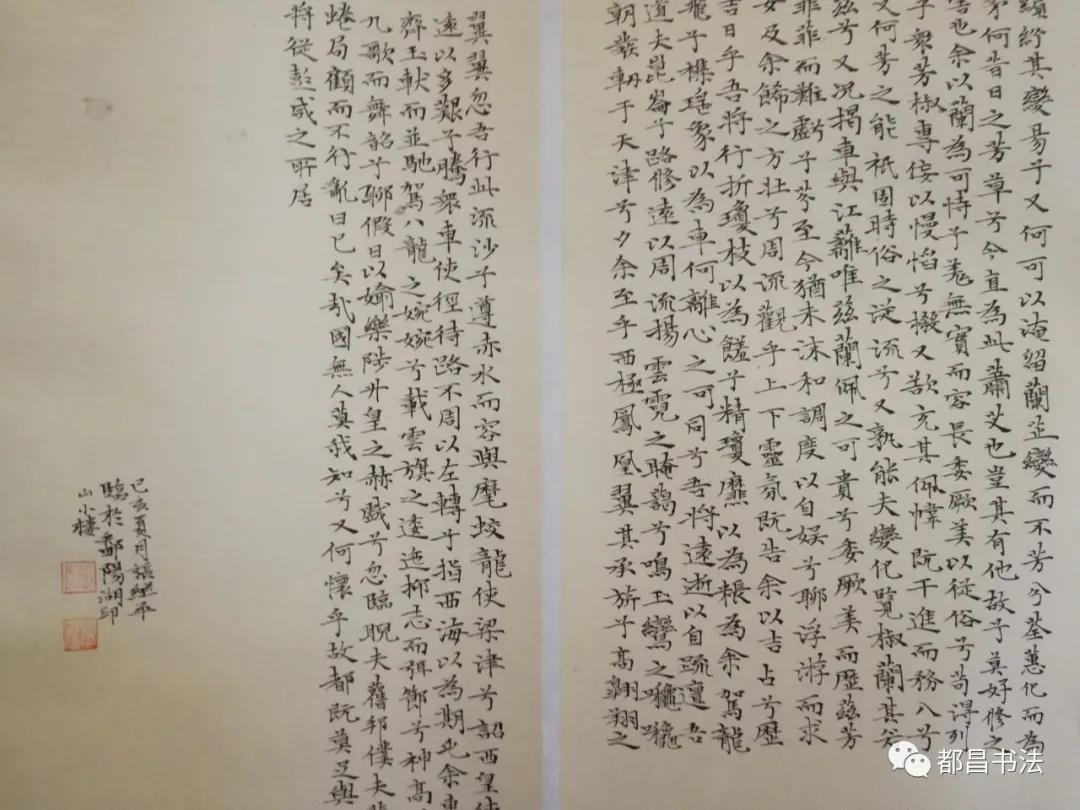 繽紛其變易兮又何可以淹留蘭芷變而不芳兮荃蕙化而為
茅何昔日之芳草兮今直為此蕭艾也豈其有他故兮莫好修之
害也余以蘭為可恃兮羌無實而容長委厥美以從俗兮苟得列
乎眾芳椒專佞以慢慆兮樧又欲充其佩幃既干進而務入兮
又何芳之能祗固時俗之從流兮又孰能夫變化覽椒蘭其若
茲兮又況揭車與江蘺唯茲蘭佩之可貴兮委厥美而歷茲芳
菲菲而難虧兮芬至今猶未沬和調度以自娛兮聊浮游而求
女及余飾之方壯兮周流觀乎上下靈氛既告余以吉占兮歷
吉日乎吾將行折瓊枝以為饈兮精瓊爢以為粻為余駕龍
飛兮雜瑤象以為車何離心之可同兮吾將遠逝以自疏邅吾
道夫崑崙兮路修遠以周流揚雲霓之晻藹兮鳴玉鸞之
朝發軔于天津兮夕余至乎西極鳳凰翼其承旂兮高翱翔之
翼翼忽吾行此流沙兮遵赤水而容與麾蛟龍使梁津兮詔西皇使
遠以多艱兮騰眾車使徑待路不周以左轉兮指西海以為期屯余車
齊玉軑而並馳駕八龍之婉婉兮載雲旗之逶迤抑志而弭節兮神高
九歌而舞韶兮聊假日以媮樂陟升皇之赫戲兮忽臨睨夫舊鄉僕夫悲
蜷局顧而不行亂曰已矣哉國無人莫我知兮又何懷乎故都既莫足與
將從彭咸之所居
己亥夏月張繼平
臨於鄱陽湖印
山小樓
都昌书法